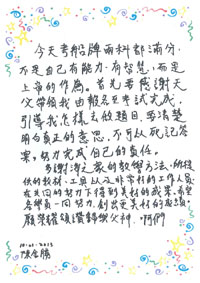 今天考船牌兩科都滿分,
不是自己有能力,有智慧,而是
上帝的作為。首先要感謝天
父帶領我由報名至考試完成,
引導我怎樣去做題目,要清楚
明白真正的意思,不可以死記答
案,努力完成自己的責任。
多謝海之旅的教學方法,所提
供的教材,工具以及非常好的工作人員,
在共同的努力下得到美好的成果,希望
各學員一同努力,創出更美好的成績。
願榮耀頌讚歸與父神,阿們
10-01-2013
陳金勝